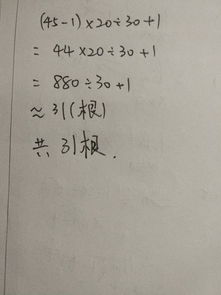 (45-1)×20÷30+1
= 44×20÷30+1
= 880÷30+1
≈ 31(根)
共 31根.